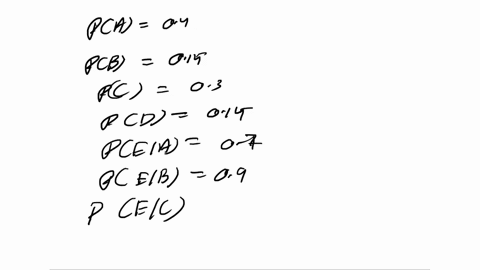 P(A) = 0.4
P(B) = 0.15
P(C) = 0.3
P(D) = 0.15
P(E/A) = 0.7
P(E/B) = 0.9
P (E/C)